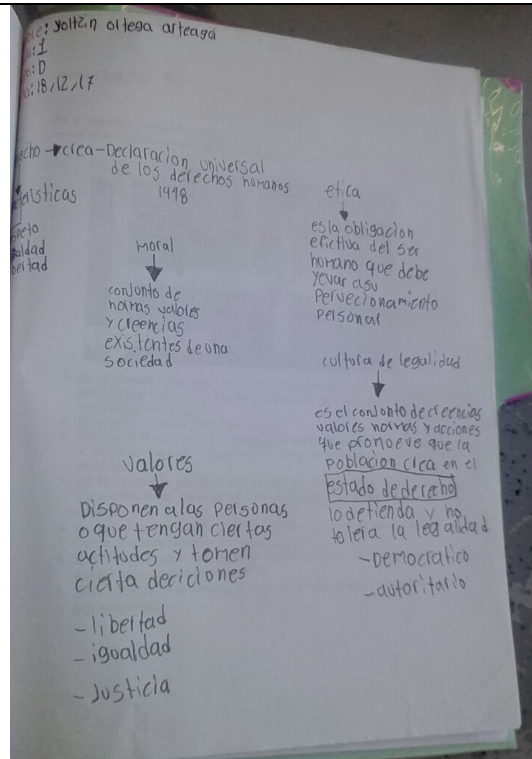 e: yoltzin ortega arteaga
: I
o: D
: 18/12/17
echo → crea - Declaracion universal
de los derechos humanos
1998
eristicas
peto
aldad
bertad
moral
conjunto de
normas valores
y creencias
existentes de una
sociedad
etica
es la obligacion
efectiva del ser
humano que debe
yevar asu
pervecionamiento
personal
cultura de legalidad
es el conjunto de creencias
valores normas y acciones
que promueve que la
poblacion crea en el
estado de derecho
lo defienda y no
tolera la legalidad
- Democratico
- autoritario
valores
Disponen a las personas
o que tengan ciertas
actitudes y tomen
cierta deciciones
- libertad
- igualdad
- Justicia